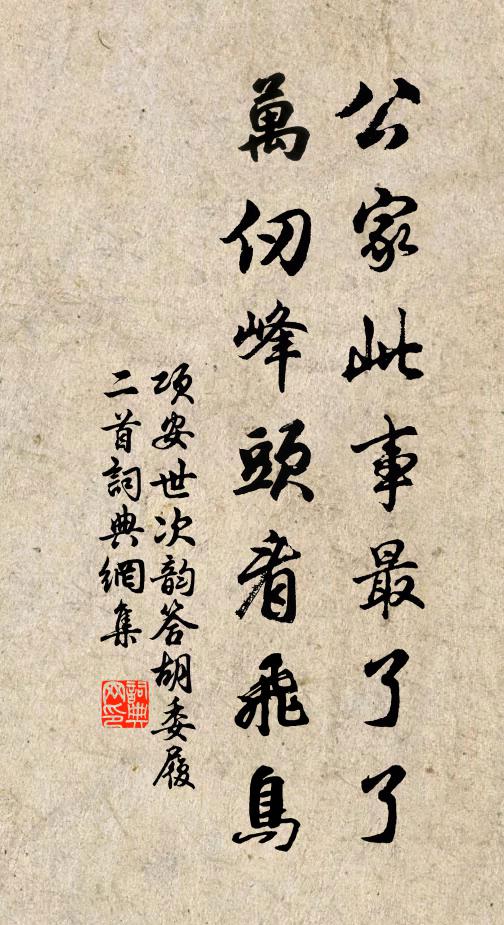 公家此事最了了
萬仞峰頭看飛鳥
項安世次韵答胡委履
二首詞典網集
詞典
网印